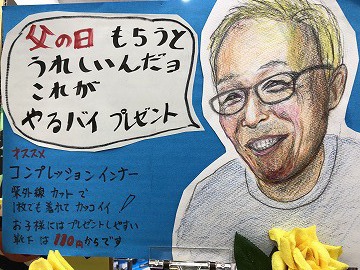 父の日 もらうと
うれしいんだョ
これが
やるバイ プレゼント
オススメ
コンプレッションインナー
紫外線カットで
1枚でも着れてカッコイイ!
お子様にはプレゼントしやすい
靴下は110円からです